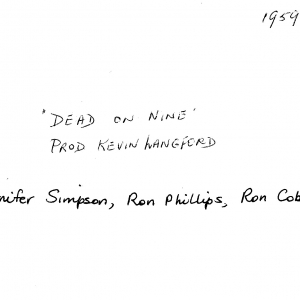 1959
"DEAD ON NINE'
PROD KEVIN LANGFORD
nifer Simpson, Ron Phillips, Ron Cob